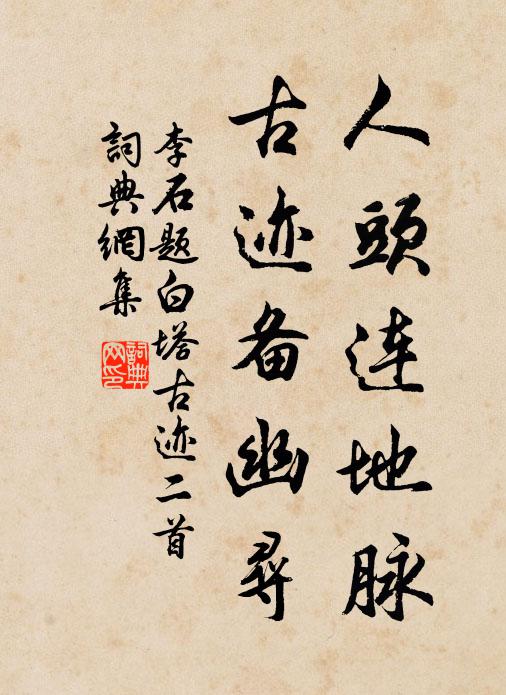 人頭连地脉
古迹备幽尋
李石题白塔古迹二首
詞典網集
詞典
网印